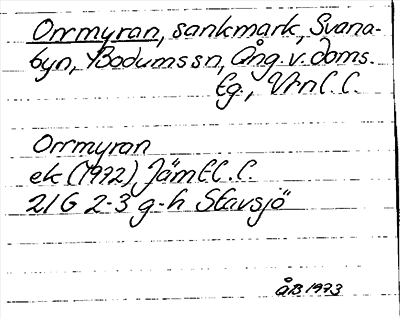 Orrmyran, sankmark, Svana-
byn, Bodums sn, Ång.v.doms.
lg., Vrnl. l.
Orrmyran
ek (1972) Jämtl. l.
21G 2-3 g-h Stavsjö
ÅB 1973